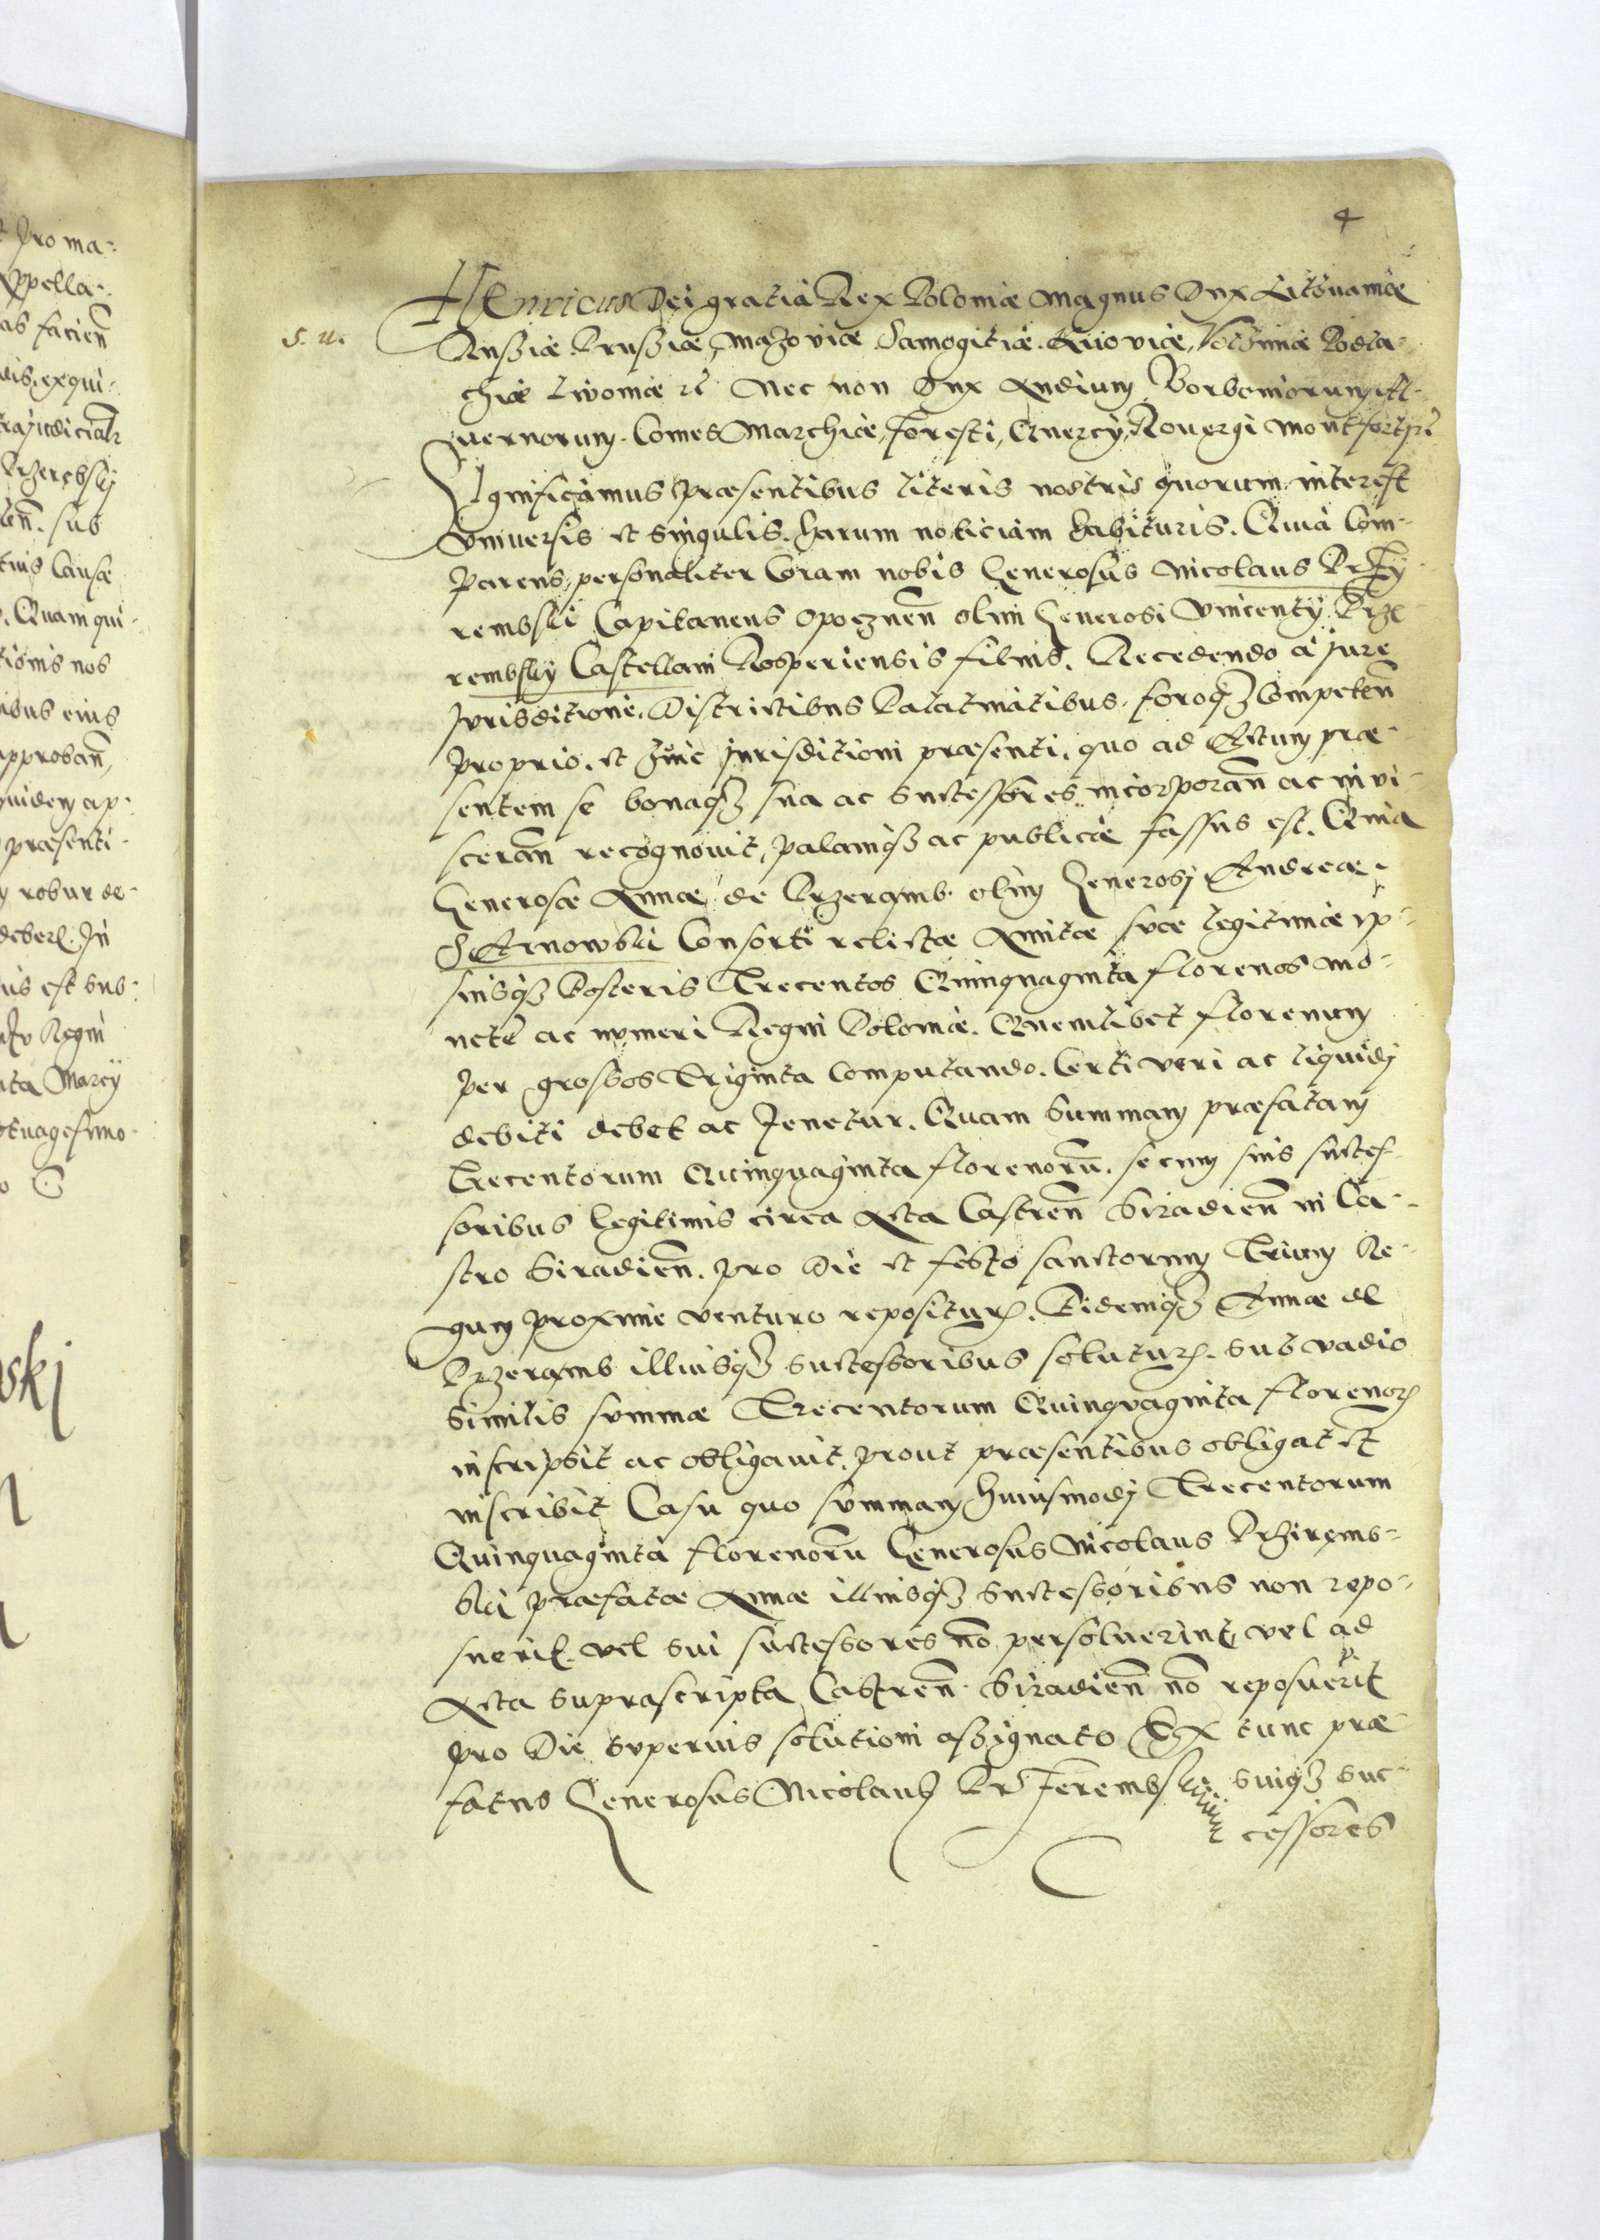 t pro ma-
Appella-
as facien
dis. exqui-
Krzerębsky
sub
tius Causæ
Quam qui-
tionis nos
ibus eius
approban̄,
quidem ap-
præsenti-
robur de-
deberet. In
ius est sub-
Regni
Marcy
ptuagesimo
ski
4
S. u.
Henricus Dei gratia Rex Poloniæ Magnus Dux Lithuaniæ
Russiæ Prussiæ, Mazoviæ Samogitiæ. Kijoviæ, Volhiniæ Podla-
chiæ Livoniæ etc̄ Nec non Dux Andium, Borboniorum, Al-
vernorum. Comes Marchiæ, Foresti, Quercy, Rovergi Montfortij etc̄
Significamus præsentibus literis nostris quorum interest
Vniversis et singulis. harum noticiam habituris. Quia Com-
parens personaliter Coram nobis Generosus Nicolaus Krzy
rembski Capitaneus Opocznen̄ olim Generosi Vincentÿ Krze
rembsky Castellani Rosperiensis filius. Recedendo a jure
Jurisditione. Districtibus Palatinatibus. foroq₃ Competen̄
proprio. et huic jurisditioni præsenti. quo ad Actum præ-
sentem se bonaq₃ sua ac successores incorporan̄ ac invi-
sceran̄ recognovit, palamq₃ ac publicæ fassus est. Quia
Generosæ Annæ de Krzeramb olim Generosj Andreæ
Consorti relictæ Amitæ suæ legitimæ ip-
siusq₃ Posteris Trecentos Quinquaginta florenos mo-
netæ ac numeri Regni Poloniæ. Quemlibet florenum
per grossos Triginta Computando. Certi veri ac liquidj
debiti debet ac Tenetur. Quam Summam præfatam
Trecentorum Quinquaginta florenorū. se cum suis succes-
soribus legitimis circa Acta Castren̄ Siradien̄ in Ca-
stro Siradien̄. pro Die et festo sanctorum Trium Re-
gum proxime venturo repositurū. Eidemq₃ Annæ de
Krzeramb illiusq₃ successoribus soluturū. sub vadio
Similis summæ Trecentorum Quinquaginta florenorū
inscripsit ac obligavit. prout præsentibus obligat et
inscribit Casu quo summam huiusmodj Trecentorum
Quinquaginta florenorū Generosus Nicolaus Krzirembs-
ki præfatæ Annæ illiusq₃ Successoribus non repo-
suerit. vel sui successores nō persoluerint, vel ad
Acta suprascripta Castren̄ Siradien̄ nō reposuerit
pro Die superius solutioni assignato Ex tunc præ-
fatus Generosus Nicolaus Krzerembski suiq₃ suc-
cessores